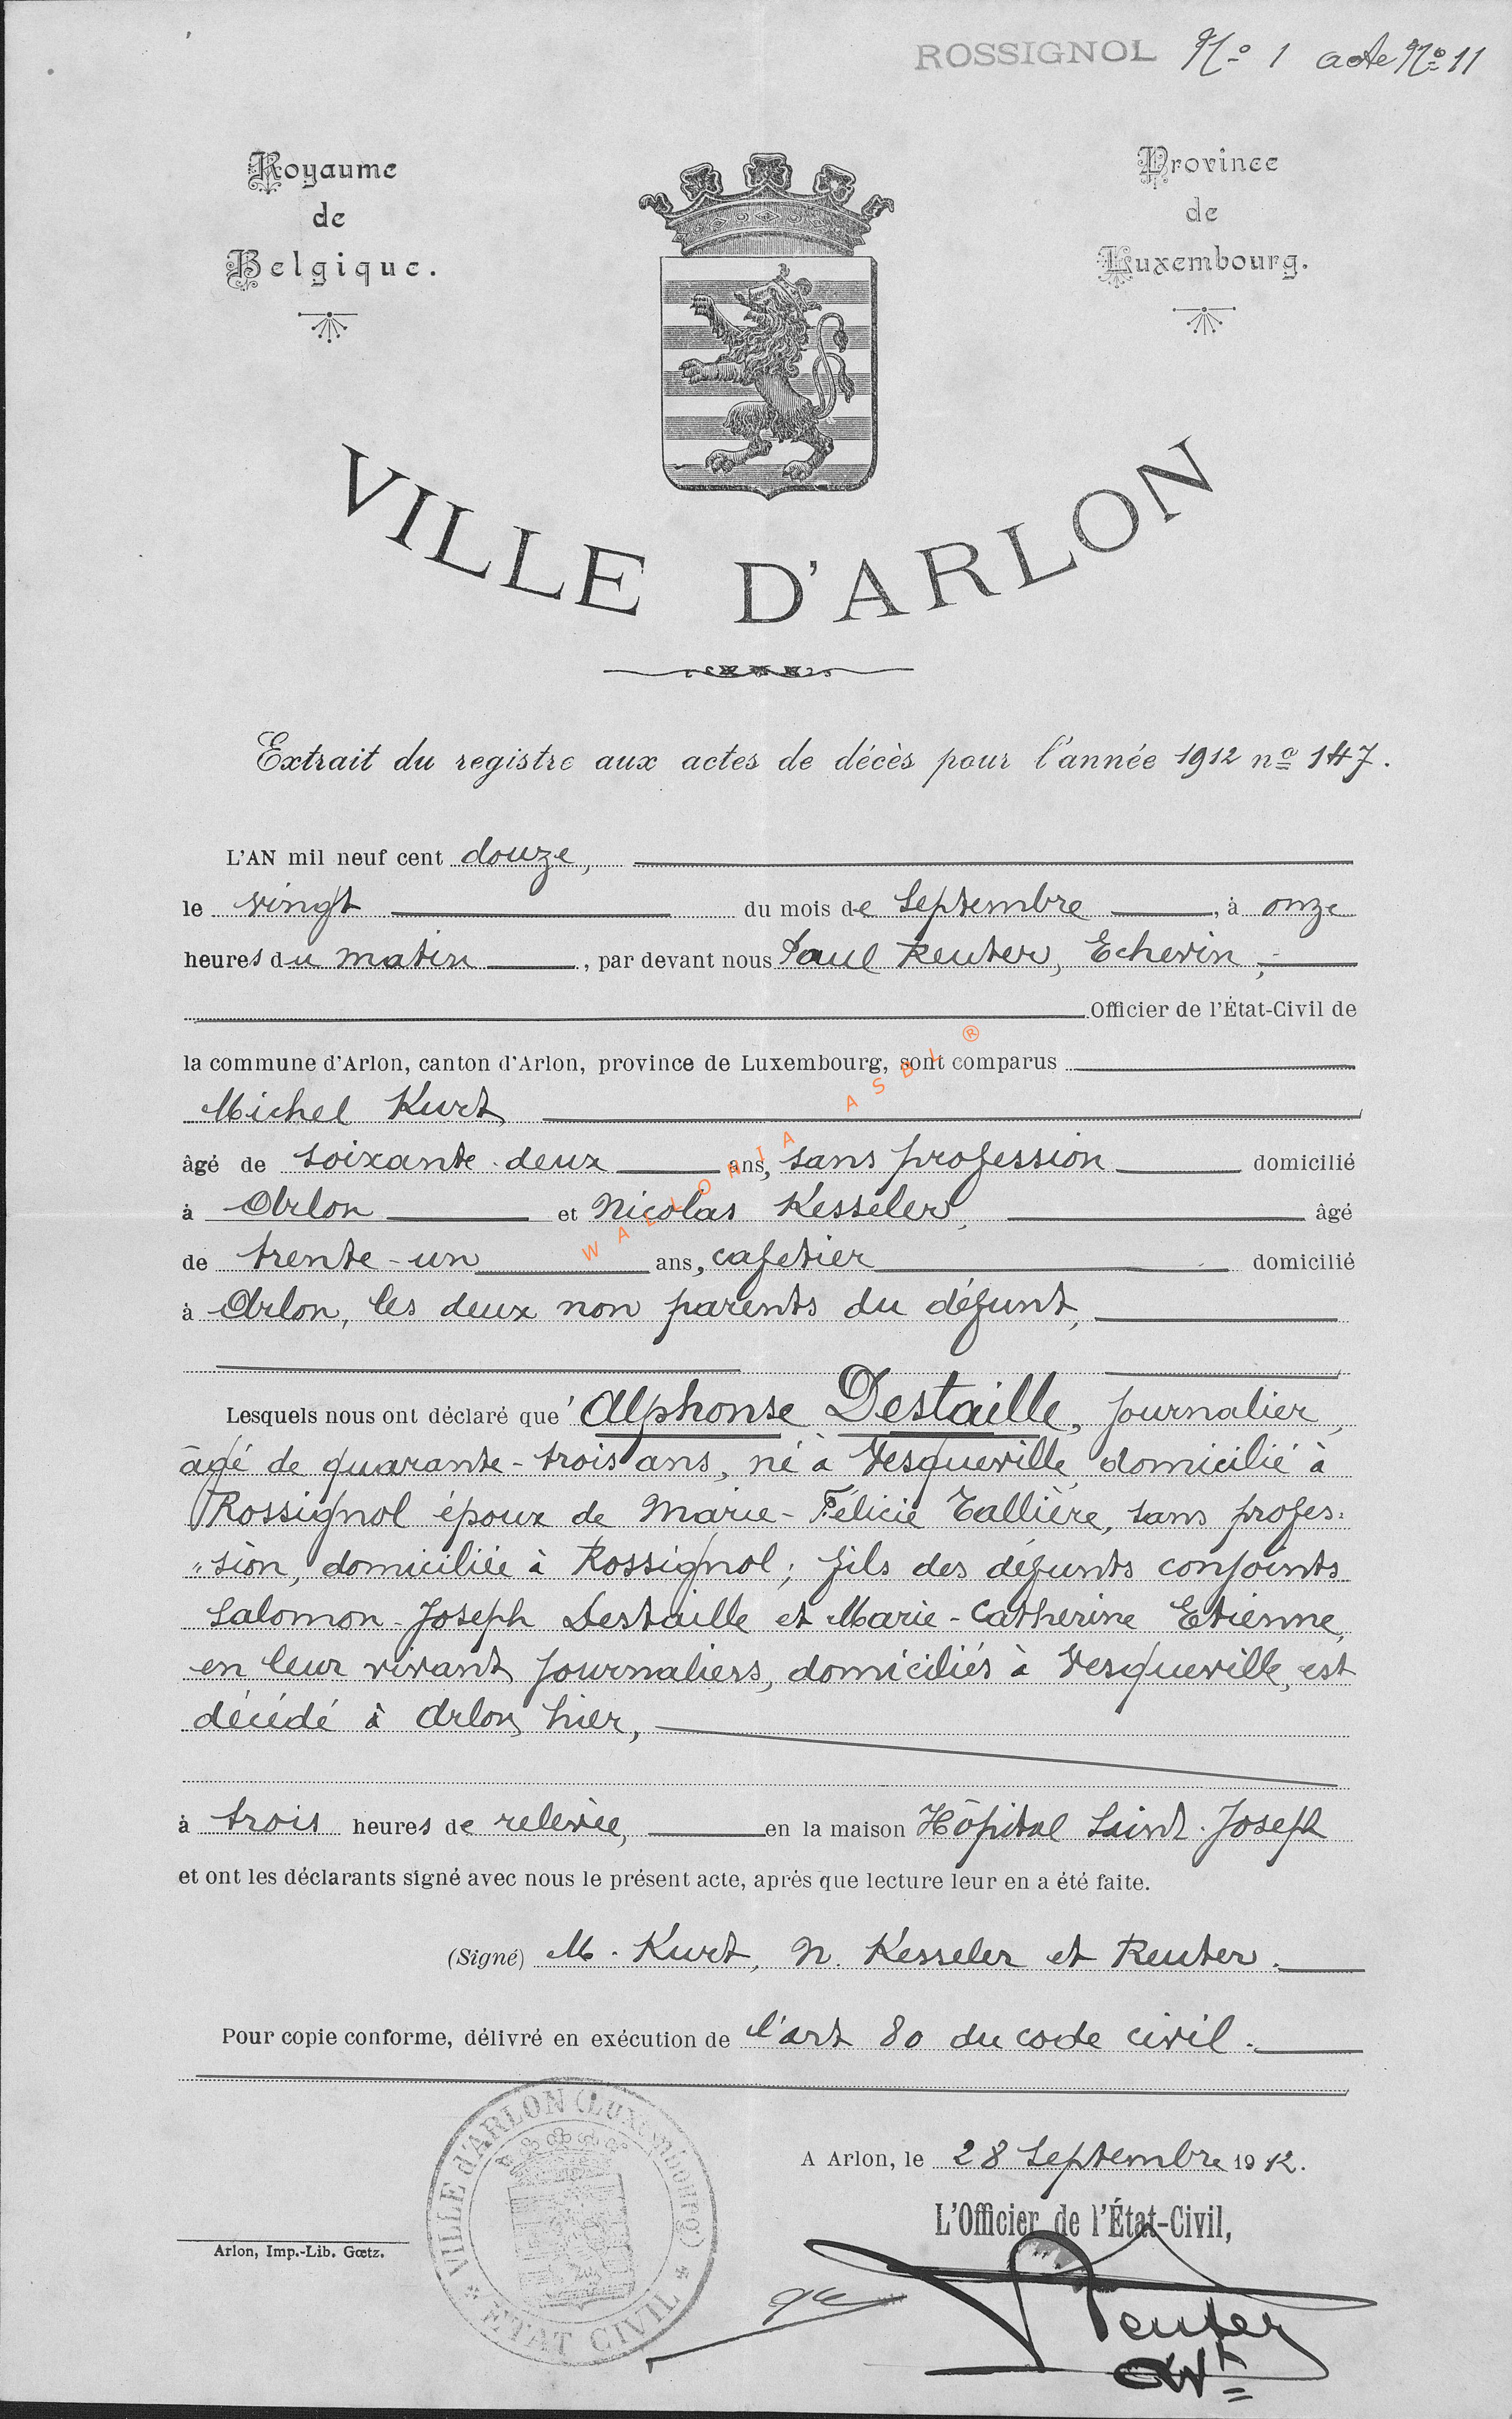 ROSSIGNOL Nº 1 acte Nº 11
Royaume
de
Belgique.
Province
de
Luxembourg.
VILLE D'ARLON
Extrait du registre aux actes de décès pour l'année 1912 nº 147.
L'AN mil neuf cent douze,
le vingt du mois de Septembre, à onze
heures du matin, par devant nous Paul Reuter, Echevin,
Officier de l'État-Civil de
la commune d'Arlon, canton d'Arlon, province de Luxembourg, sont comparus
Michel Kurt
âgé de soixante-deux ans, sans profession domicilié
à Arlon et Nicolas Kesseler, âgé
de trente-un ans, cafetier domicilié
à Arlon, les deux non parents du défunt,
Lesquels nous ont déclaré que Alphonse Destaille, journalier,
âgé de quarante-trois ans, né à Vesqueville, domicilié à
Rossignol époux de Marie-Félicie Tallière, sans profes=
"sion, domiciliée à Rossignol; fils des défunts conjoints
Salomon-Joseph Destaille et Marie-Catherine Etienne,
en leur vivant journaliers, domiciliés à Vesqueville, est
décédé à Arlon, hier,
à trois heures de relevée, en la maison Hôpital Saint-Joseph
et ont les déclarants signé avec nous le présent acte, après que lecture leur en a été faite.
(Signé) M. Kurt, N. Kesseler et Reuter.
Pour copie conforme, délivré en exécution de l'art 80 du code civil.
A Arlon, le 28 Septembre 1912.
L'Officier de l'État-Civil,
Reuter
Arlon, Imp.-Lib. Gœtz.
VILLE d'ARLON (Luxembourg)
* ETAT CIVIL *
WALLONIA ASBL ®